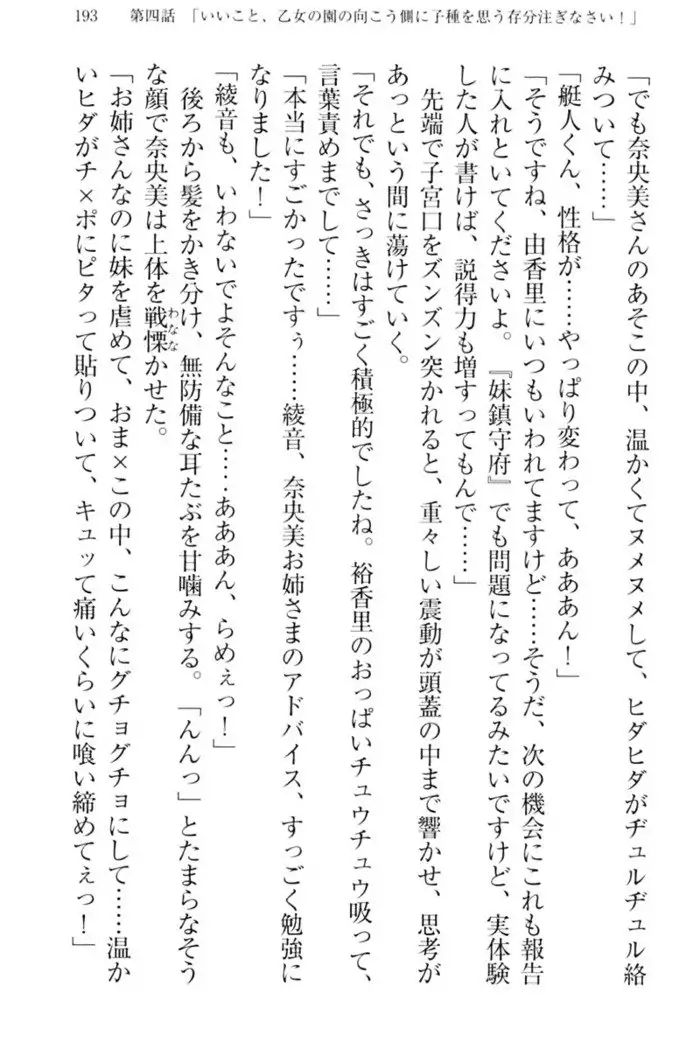 193　第四話　「いいこと、乙女の園の向こう側に子種を思う存分注ぎなさい！」
「でも奈央美さんのあそこの中、温かくてヌメヌメして、ヒダヒダがヂュルヂュル絡
みついて……」
「艇人くん、性格が……やっぱり変わって、あああん！」
「そうですね、由香里にいつもいわれてますけど……そうだ、次の機会にこれも報告
に入れといてくださいよ。『妹鎮守府』でも問題になってるみたいですけど、実体験
した人が書けば、説得力も増すってもんで……」
　先端で子宮口をズンズン突かれると、重々しい震動が頭蓋の中まで響かせ、思考が
あっという間に蕩けていく。
「それでも、さっきはすごく積極的でしたね。裕香里のおっぱいチュウチュウ吸って、
言葉責めまでして……」
「本当にすごかったですぅ……綾音、奈央美お姉さまのアドバイス、すっごく勉強に
なりました！」
「綾音も、いわないでよそんなこと……あああん、らめぇっ！」
　後ろから髪をかき分け、無防備な耳たぶを甘噛みする。「んんっ」とたまらなそう
な顔で奈央美は上体を戦慄かせた。
わなな
「お姉さんなのに妹を虐めて、おま×この中、こんなにグチョグチョにして……温か
いヒダがチ×ポにピタって貼りついて、キュッて痛いくらいに喰い締めてぇっ！」